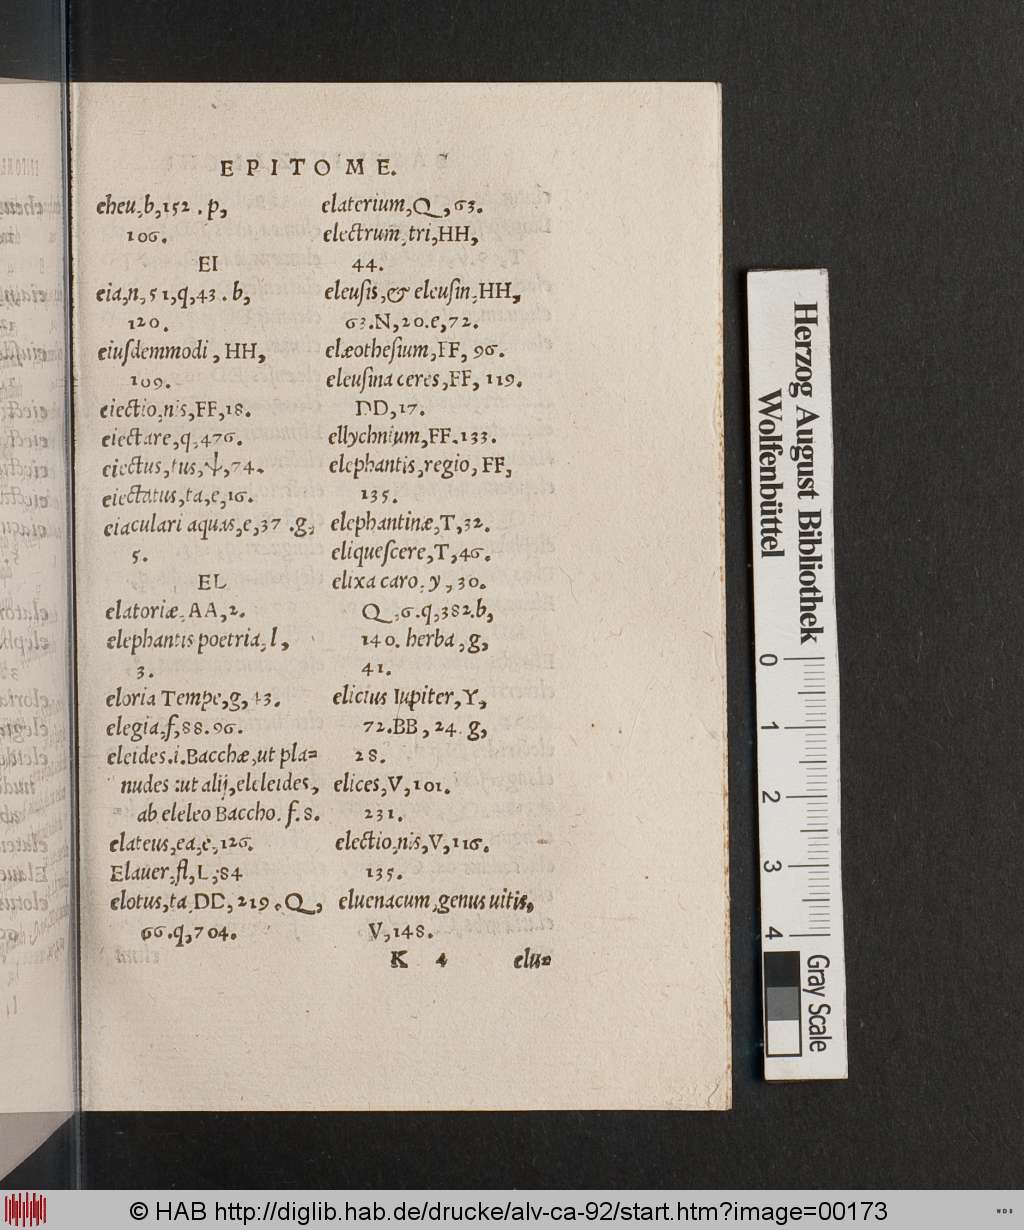 EPITOME.
eheu,b,152.p,
106.
EI
eia,n,51,q,43.b,
120.
eiusdemmodi, HH,
109.
eiectio,nis,FF,18.
eiectare,q,476.
eiectus,tus,ψ,74.
eiectatus,ta,e,16.
eiaculari aquas,e,37.g,
5.
EL
elatoriæ,AA,2.
elephantis poetria,l,
3.
eloria Tempe,g,43.
elegia,f,88.96.
eleides.i.Bacchæ,ut pla=
nudes:ut alij,eleleides,
ab eleleo Baccho.f.8.
elateus,ea,e,126.
Elauer,fl,L,84
elotus,ta,DD,219.Q,
66.q,704.
elaterium,Q,63.
electrum,tri,HH,
44.
eleusis,& eleusin,HH,
63.N,20.e,72.
elæothesium,FF,96.
eleusina ceres,FF,119.
DD,17.
ellychnium,FF.133.
elephantis,regio,FF,
135.
elephantinæ,T,32.
eliquescere,T,46.
elixa caro,y,30.
Q,6.q,382.b,
140. herba,g,
41.
elicius Iupiter,Y,
72.BB,24.g,
28.
elices,V,101.
231.
electio,nis,V,116.
135.
eluenacum,genus uitis,
V,148.
K 4 elu=
Herzog August Bibliothek
Wolfenbüttel
0 1 2 3 4
Gray Scale
© HAB http://diglib.hab.de/drucke/alv-ca-92/start.htm?image=00173